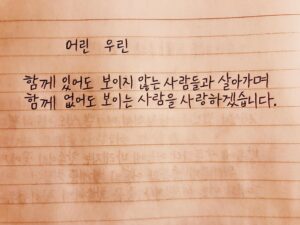 어린 우린
함께 있어도 보이지 않는 사람들과 살아가며
함께 없어도 보이는 사람을 사랑하겠습니다.